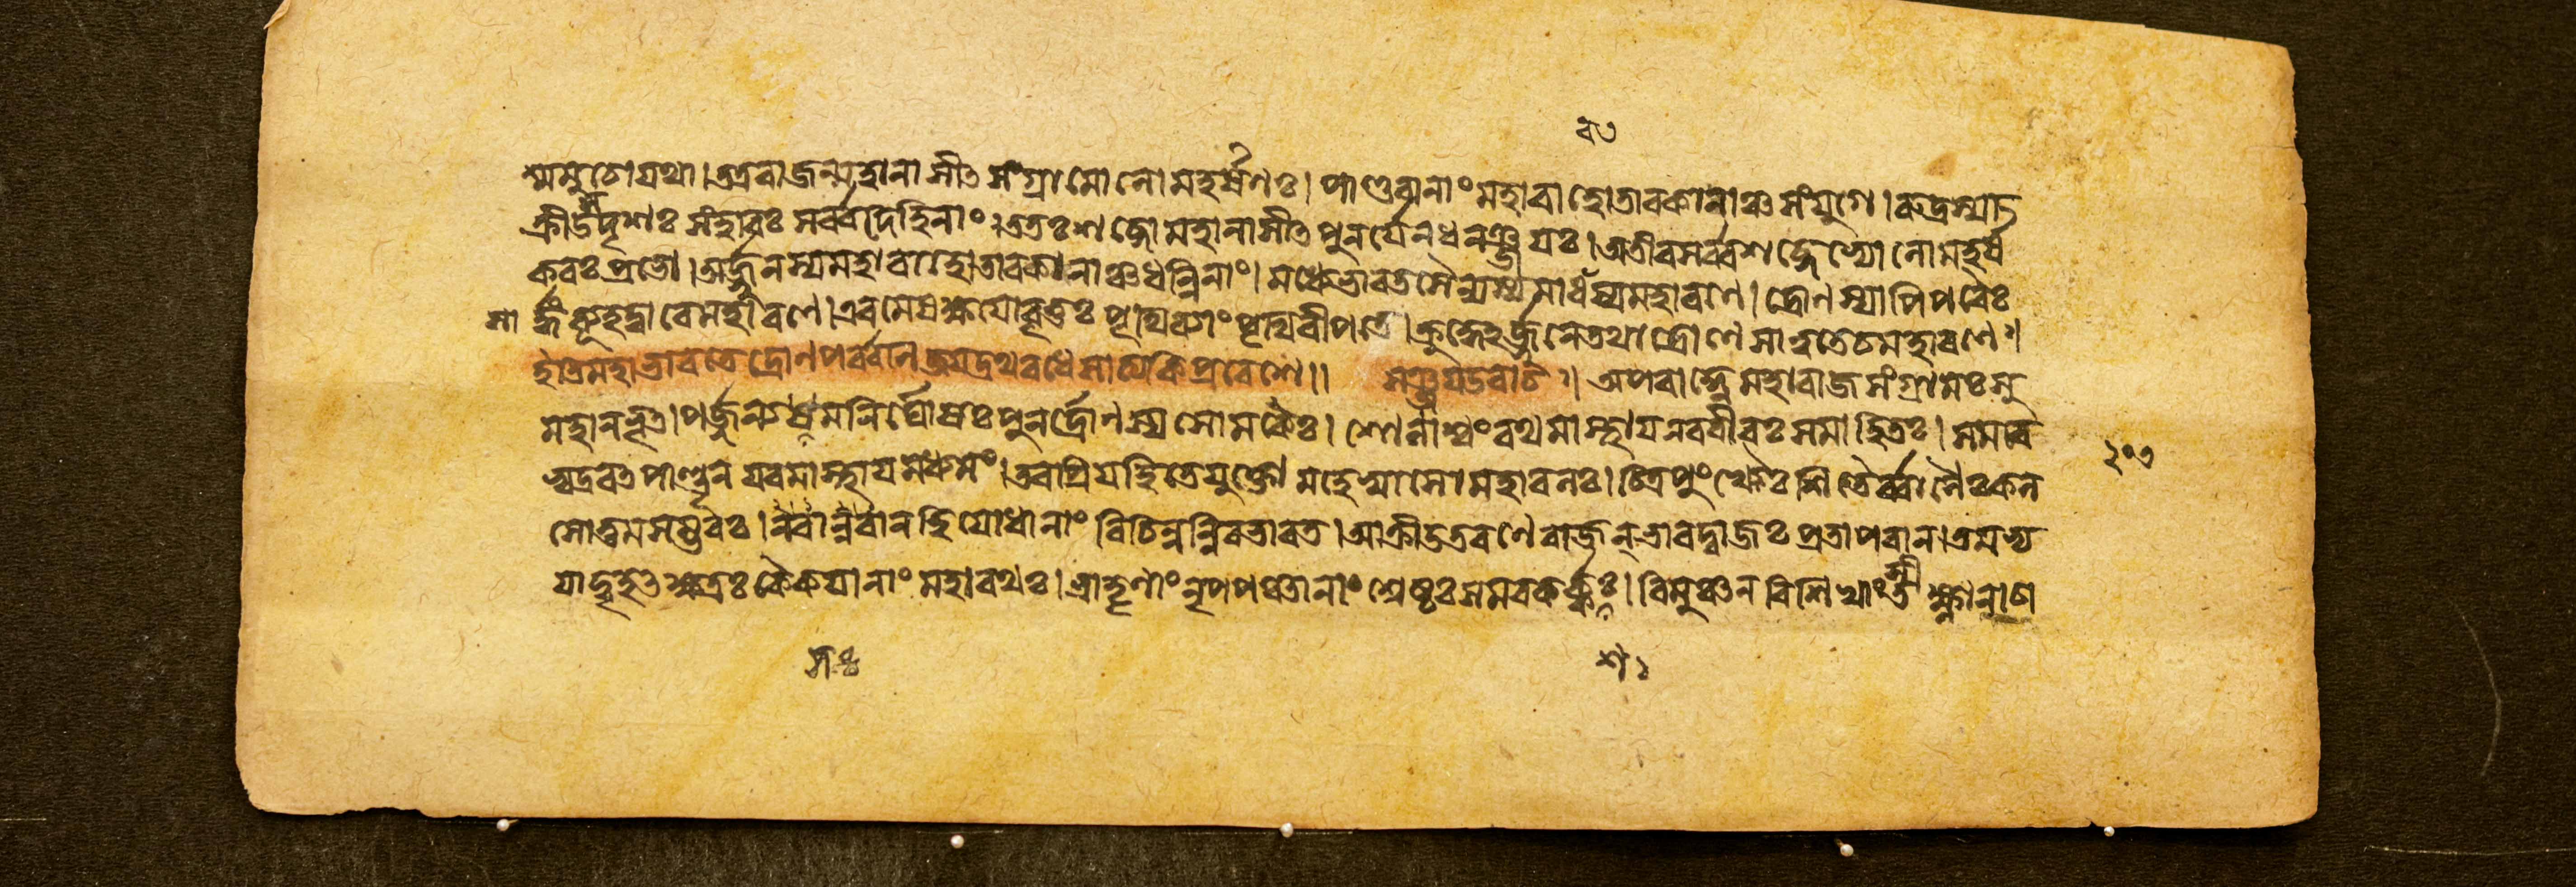 ক্ষমমুচো যথা।তত্র রাজন্মহানাসীৎ সংগ্রামো লোমহর্ষণঃ। পাণ্ডবানাং মহাবাহো তাবকানাঞ্চ সংযুগে।রুদ্রস্যা
ক্রীডসদৃশঃ সংহারঃ সর্ব্বদেহিনাং।ততঃ শব্দো মহানাসীৎ পুনর্যেন ধনঞ্জয়ঃ।অতীব সর্ব্বশব্দেভ্যো লোমহর্ষ
করঃ প্রভো।অর্জ্জুনস্য মহাবাহো তাবকানাঞ্চ ধন্বিনাং। মধ্যে ভারতসৈন্যস্য মাধবস্য মহারণে। দ্রোণস্যাপি পরৈঃ
সার্দ্ধং ব্যূহদ্বারে মহারণে।এবমেষ ক্ষয়ো বৃত্তঃ পৃথিব্যাং পৃথিবীপতে।ক্রুদ্ধেঽর্জ্জুনে তথা দ্রোণে সাত্বতে চ মহারথে॥
ইতি মহাভারতে দ্রোণপর্ব্বণি জয়দ্রথবধে সাত্যকিপ্রবেশে॥ সঞ্জয় উবাচ॥ অপরাহ্ণে মহারাজ সংগ্রামঃ সু
মহানভূৎ।পর্জ্জন্যসমনির্ঘোষঃ পুনর্দ্রোণস্য সোমকৈঃ। শোণাশ্বং রথমাস্থায় নরবীরঃ সমাহিতঃ। সমরে
ভ্যদ্রবৎ পাণ্ডূন্ জবমাস্থায় মধ্যমং।তব প্রিয়হিতে যুক্তো মহেষ্বাসো মহাবলঃ। চিত্রপুংখৈঃ শিতৈর্ব্বাণৈঃ কল
সোত্তমসম্ভবঃ।বরান্বরান্ হি যোধানাং বিচিন্বন্নিব ভারত।আক্রীডত রণে রাজন্ ভারদ্বাজঃ প্রতাপবান্।তমভ্য
যাদ্বৃহৎক্ষত্রঃ কৈকয়ানাং মহারথঃ।ভ্রাতৄণাং নৃপ পঞ্চানাং শ্রেষ্ঠঃ সমরকর্কশঃ।বিমুঞ্চন্ বিশিখাংস্তীক্ষ্ণানাচা